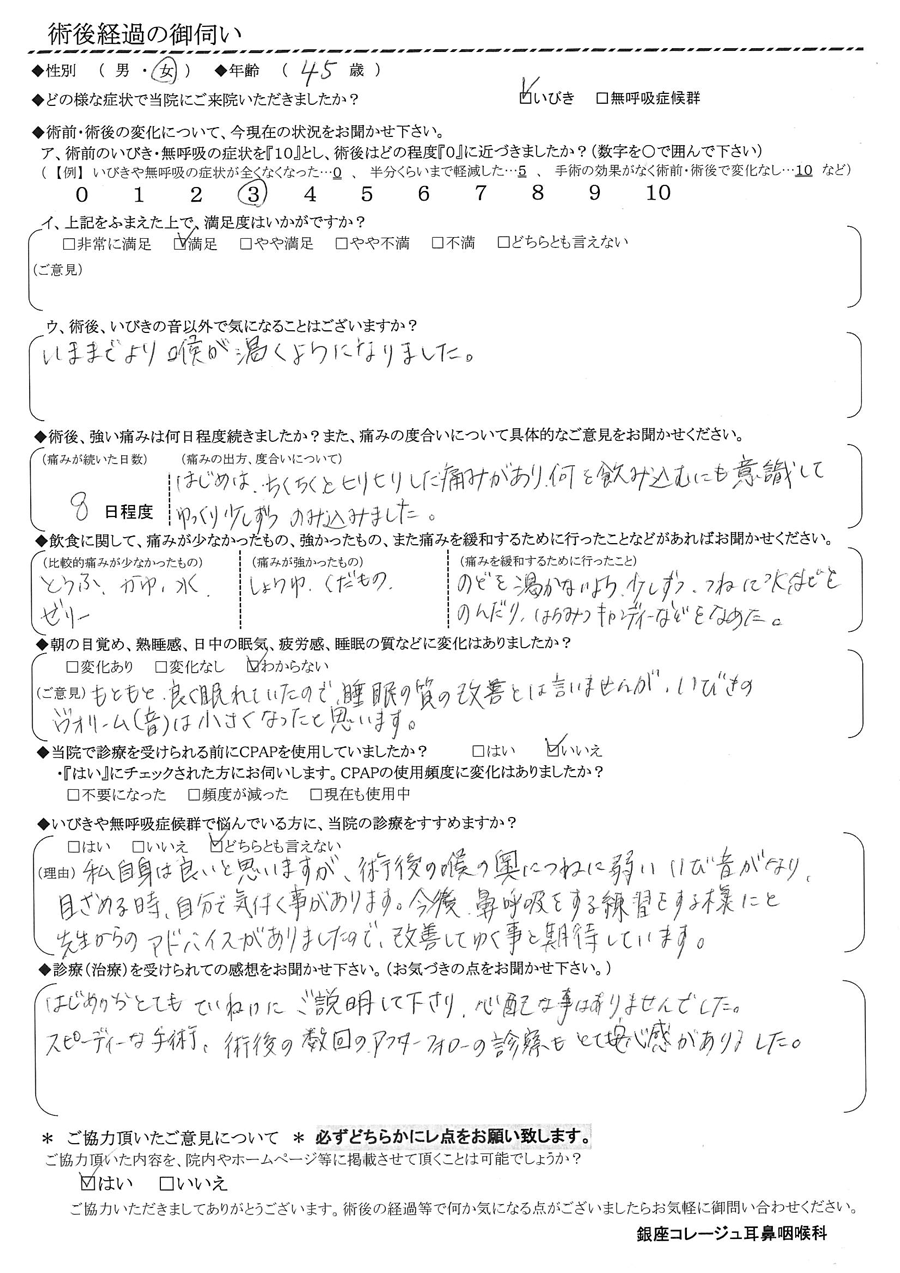 術後経過の御伺い
◆性別 ( 男 ・ 女 ) ◆年齢 ( 45 歳 )
◆どの様な症状で当院にご来院いただきましたか? ☑いびき □無呼吸症候群
◆術前・術後の変化について、今現在の状況をお聞かせ下さい。
ア、術前のいびき・無呼吸の症状を『10』とし、術後はどの程度『0』に近づきましたか?(数字を○で囲んで下さい)
(【例】いびきや無呼吸の症状が全くなくなった…0 、 半分くらいまで軽減した…5 、 手術の効果がなく術前・術後で変化なし…10 など)
0 1 2 3 4 5 6 7 8 9 10
イ、上記をふまえた上で、満足度はいかがですか?
□非常に満足 ☑満足 □やや満足 □やや不満 □不満 □どちらとも言えない
(ご意見)
ウ、術後、いびきの音以外で気になることはございますか?
いままでより喉が渇くようになりました。
◆術後、強い痛みは何日程度続きましたか?また、痛みの度合いについて具体的なご意見をお聞かせください。
(痛みが続いた日数) (痛みの出方、度合いについて)
はじめは、ちくちくとヒリヒリした痛みがあり、何を飲み込むにも意識して
8 日程度 ゆっくり少しずつ のみ込みました。
◆飲食に関して、痛みが少なかったもの、強かったもの、また痛みを緩和するために行ったことなどがあればお聞かせください。
(比較的痛みが少なかったもの) (痛みが強かったもの) (痛みを緩和するために行ったこと)
とうふ、かゆ、水、 しょうゆ、くだもの、 のどを渇かないよう、少しずつ、つねに水などを
ゼリー のんだり、はちみつキャンディーなどをなめた。
◆朝の目覚め、熟睡感、日中の眠気、疲労感、睡眠の質などに変化はありましたか?
□変化あり □変化なし ☑わからない
(ご意見) もともと、良く眠れていたので、睡眠の質の改善とは言いませんが、いびきの
ヴォリーム(音)は小さくなったと思います。
◆当院で診療を受けられる前にCPAPを使用していましたか? □はい ☑いいえ
・『はい』にチェックされた方にお伺いします。CPAPの使用頻度に変化はありましたか?
□不要になった □頻度が減った □現在も使用中
◆いびきや無呼吸症候群で悩んでいる方に、当院の診療をすすめますか?
□はい □いいえ ☑どちらとも言えない
(理由) 私自身は良いと思いますが、術後の喉の奥につねに弱い いび音がなり、
目ざめる時、自分で気付く事があります。今後、鼻呼吸をする練習をする様にと
先生からの アドバイスがありましたので、改善してゆく事と期待しています。
◆診療(治療)を受けられての感想をお聞かせ下さい。(お気づきの点をお聞かせ下さい。)
はじめからとても ていねいに ご説明して下さり、心配な事はありませんでした。
スピーディーな手術、術後の数回のアフターフォローの診察もとても安心感がありました。
* ご協力頂いたご意見について * 必ずどちらかにレ点をお願い致します。
ご協力頂いた内容を、院内やホームページ等に掲載させて頂くことは可能でしょうか?
☑はい □いいえ
ご協力いただきましてありがとうございます。術後の経過等で何か気になる点がございましたらお気軽に御問い合わせください。
銀座コレージュ耳鼻咽喉科